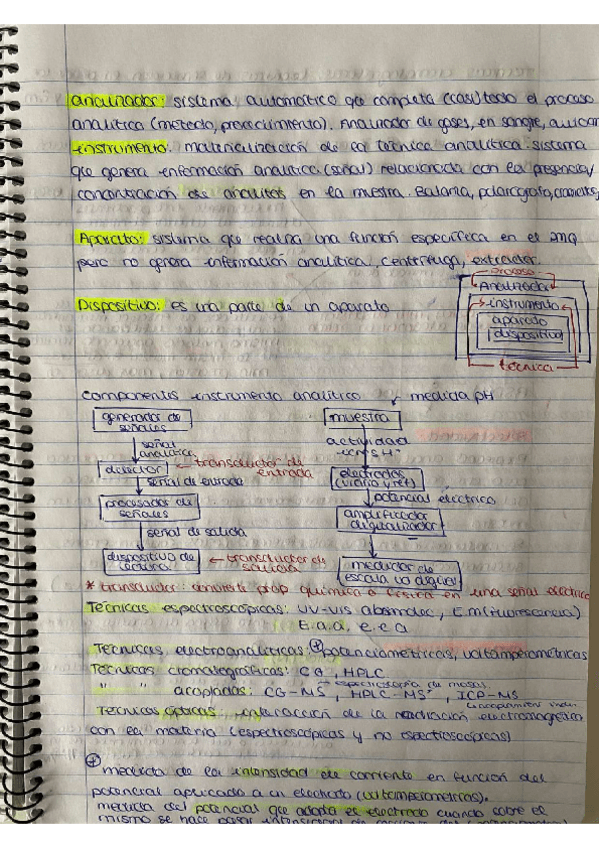 analizador: sistema automático que completa (casi) todo el proceso
analítica (metodo, procedimiento). Analizador de gases, en sangre,
instrumento: materialización de la técnica analítica: sistema
que genera información analítica (señal) relacionada con la presencia/
concentración de analitos en la muestra. Balanza, polarografo,
Aparato: sistema que realiza una función específica en el
pero no genera información analítica, centrífuga, extractor.
Dispositivo: es una parte de un aparato
proceso
Analizador
instrumento
aparato
dispositivo
técnica
componentes instrumento analítico
generador de señales
señal analítica
detector ← transductor de entrada
señal de entrada
procesador de señales
señal de salida
dispositivo de lectura ← transductor de salida
medida pH
muestra
actividad
electrodos (vidrio y ref)
potencial eléctrico
amplificador digitalizador
medidor de escala o digital
* transductor: convierte prop química o física en una señal eléctrica
Técnicas espectroscópicas: UV-UIS absmolec, E.M (fluorescencia)
E.a.a, e.e.a
Técnicas electroanalíticas: ⊕ potenciométricas, voltamperométricas
Técnicas cromatográficas: CG, HPLC
espectroscopia de masas
" " acopladas: CG-MS, HPLC-MS, ICP-MS
Técnicas ópticas: interacción de la radiación electromagnética
con la materia (espectroscópicas y no espectroscópicas)
⊕
medida de la intensidad de corriente en función del
potencial aplicado a un electrodo (voltamperométricas).
medida del potencial que adopta el electrodo cuando sobre el
mismo se hace pasar